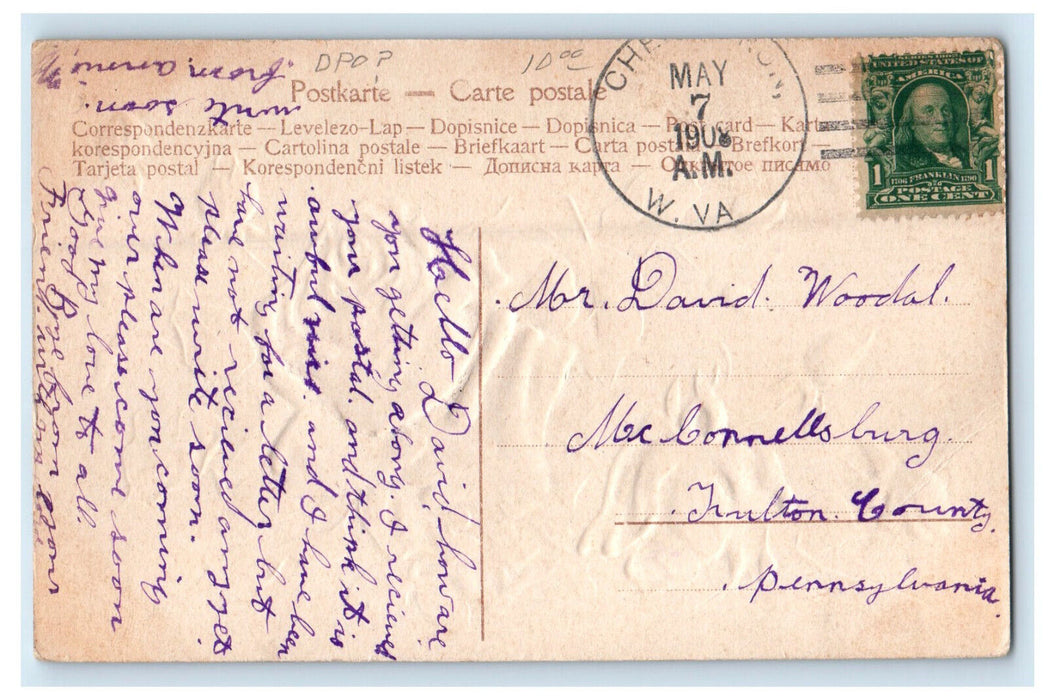 DPO?
10 00
Postkarte — Carte postale
Correspondenzkarte — Levelezo-Lap — Dopisnice — Dopisnica — Post card — Karta
korespondencyjna — Cartolina postale — Briefkaart — Carta postala — Brefkort —
Tarjeta postal — Korespondenční listek — Дописна карта — Открытое писмо
MAY
7
1908
A.M.
W. VA
UNITED STATES OF
AMERICA
1 1
1706 FRANKLIN 1790
POSTAGE
ONE CENT
Mr. David. Woodal.
Mc Connellsburg.
Fulton. County.
Pennsylvania.
Hello David, how are
you getting along. I recieved
you postal. and think it is
awful nice. and I have been
waiting for a letter but
have not recieved any yet
please write soon.
When are you coming
over please come soon
give my love to all.
Good Bye from your
Friend.
write soon.
from. annie